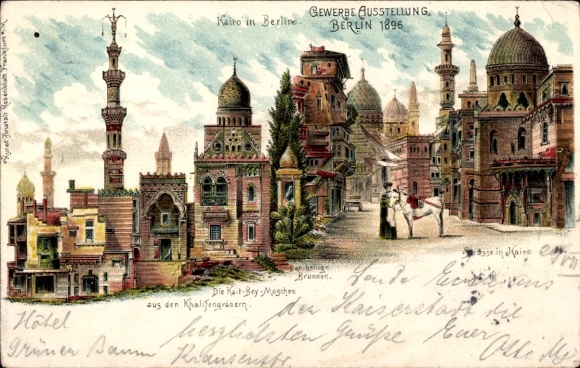 Kairo in Berlin.
GEWERBE AUSSTELLUNG
BERLIN 1896
Kunst Anstalt Rosenblatt Frankfurt a/M.
Der heilige
Brunnen.
Strasse in Kairo.
Die Kait-Bey-Moschee
aus den Khalifengräbern.
Sende Euch aus
der Kaiserstadt die
herzlichsten Grüße Euer
Otto
Hôtel
Grüner Baum
Krausenstr.